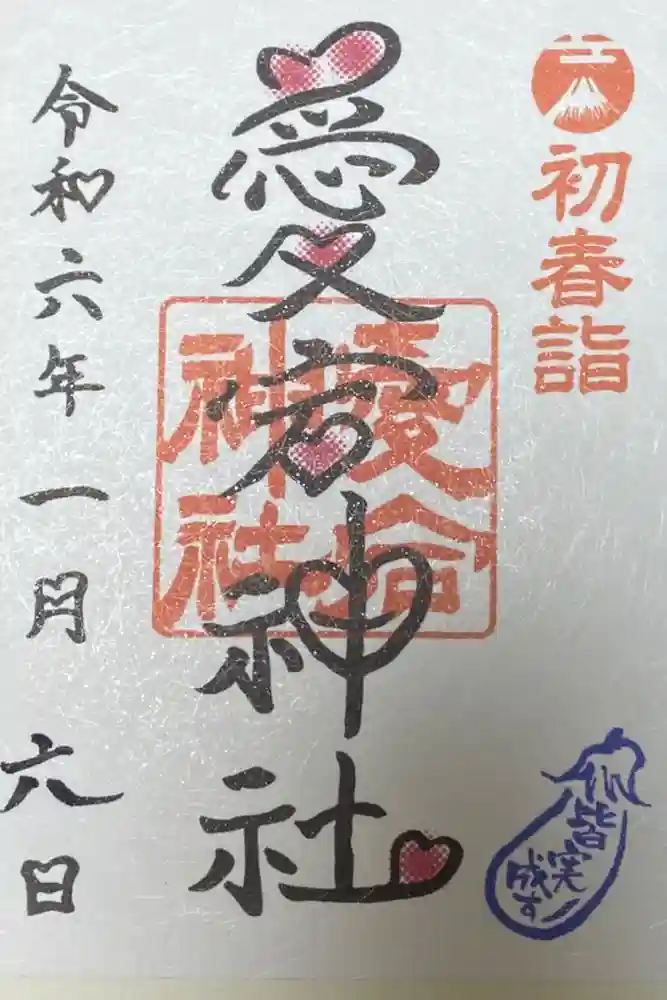 初春詣
愛宕神社
愛宕神社
令和六年一月六日
皆実
成す